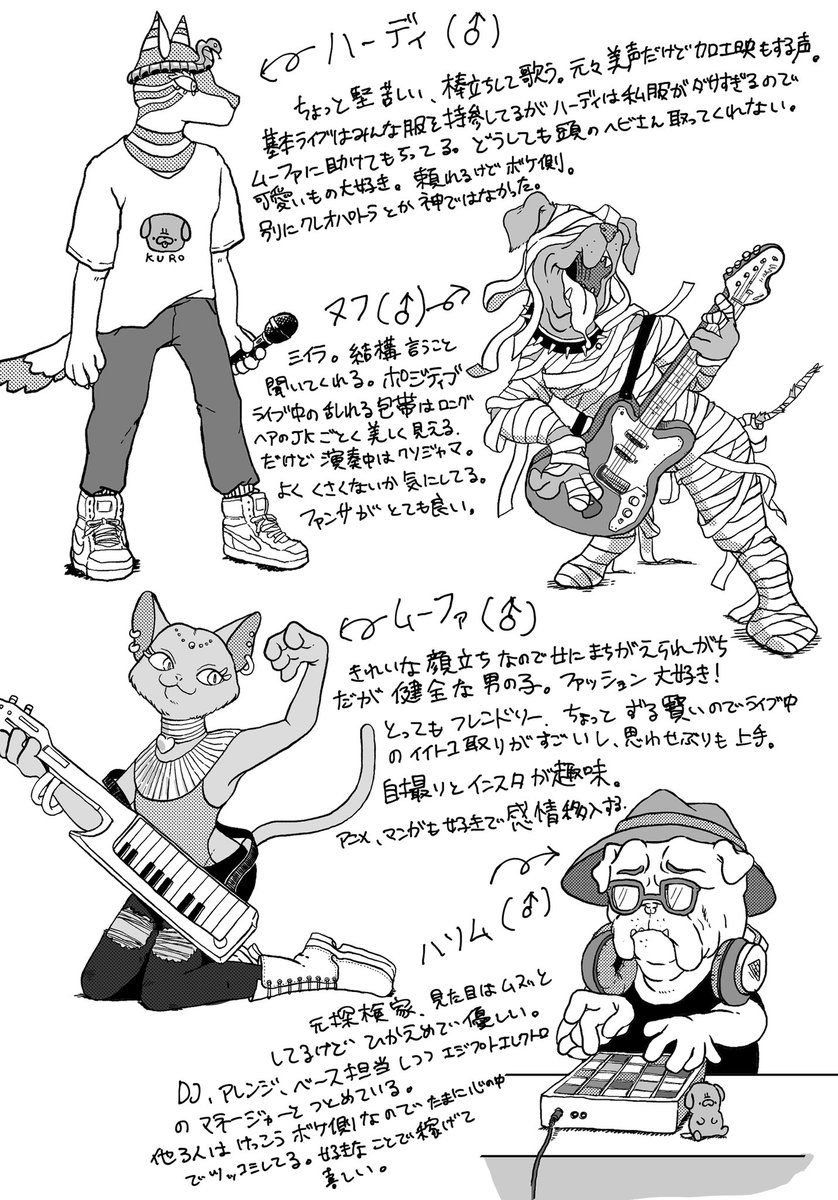 ハーディ(♂)
ちょっと堅苦しい、棒立ちして歌う。元々美声だけど加工映もする声。
基本ライブはみんな服を持参してるがハーディは私服がダサすぎるので
ムーファに助けてもらってる。どうしても頭のヘビさん取ってくれない。
可愛いもの大好き。頼れるけどボケ側。
別にクレオパトラとか神ではなかった。
KURO
ヌフ(♂)
ミイラ。結構言うこと
聞いてくれる。ポジティブ
ライブ中の乱れる包帯はロング
ヘアのJKごとく美しく見える
だけど演奏中はクソジャマ。
よくくさくないか気にしてる。
ファンサがとても良い。
ムーファ(♂)
きれいな顔立ちなので女にまちがえられがち
だが健全な男の子。ファッション大好き!
とってもフレンドリー、ちょってずる賢いのでライブ中
のイイトコ取りがすごいし、思わせぶりも上手。
自撮りとインスタが趣味。
アニメ、マンガも好きで感情移入する。
ハソム(♂)
元探検家、見た目はムスッと
してるけどひかえめで優しい。
DJ、アレンジ、ベース担当しつつエジプトエレクトロ
のマネージャーとつとめている。
他3人はけっこうボケ側なのでたまに心の中
でツッコミしてる。好きなことで稼げて
嬉しい。